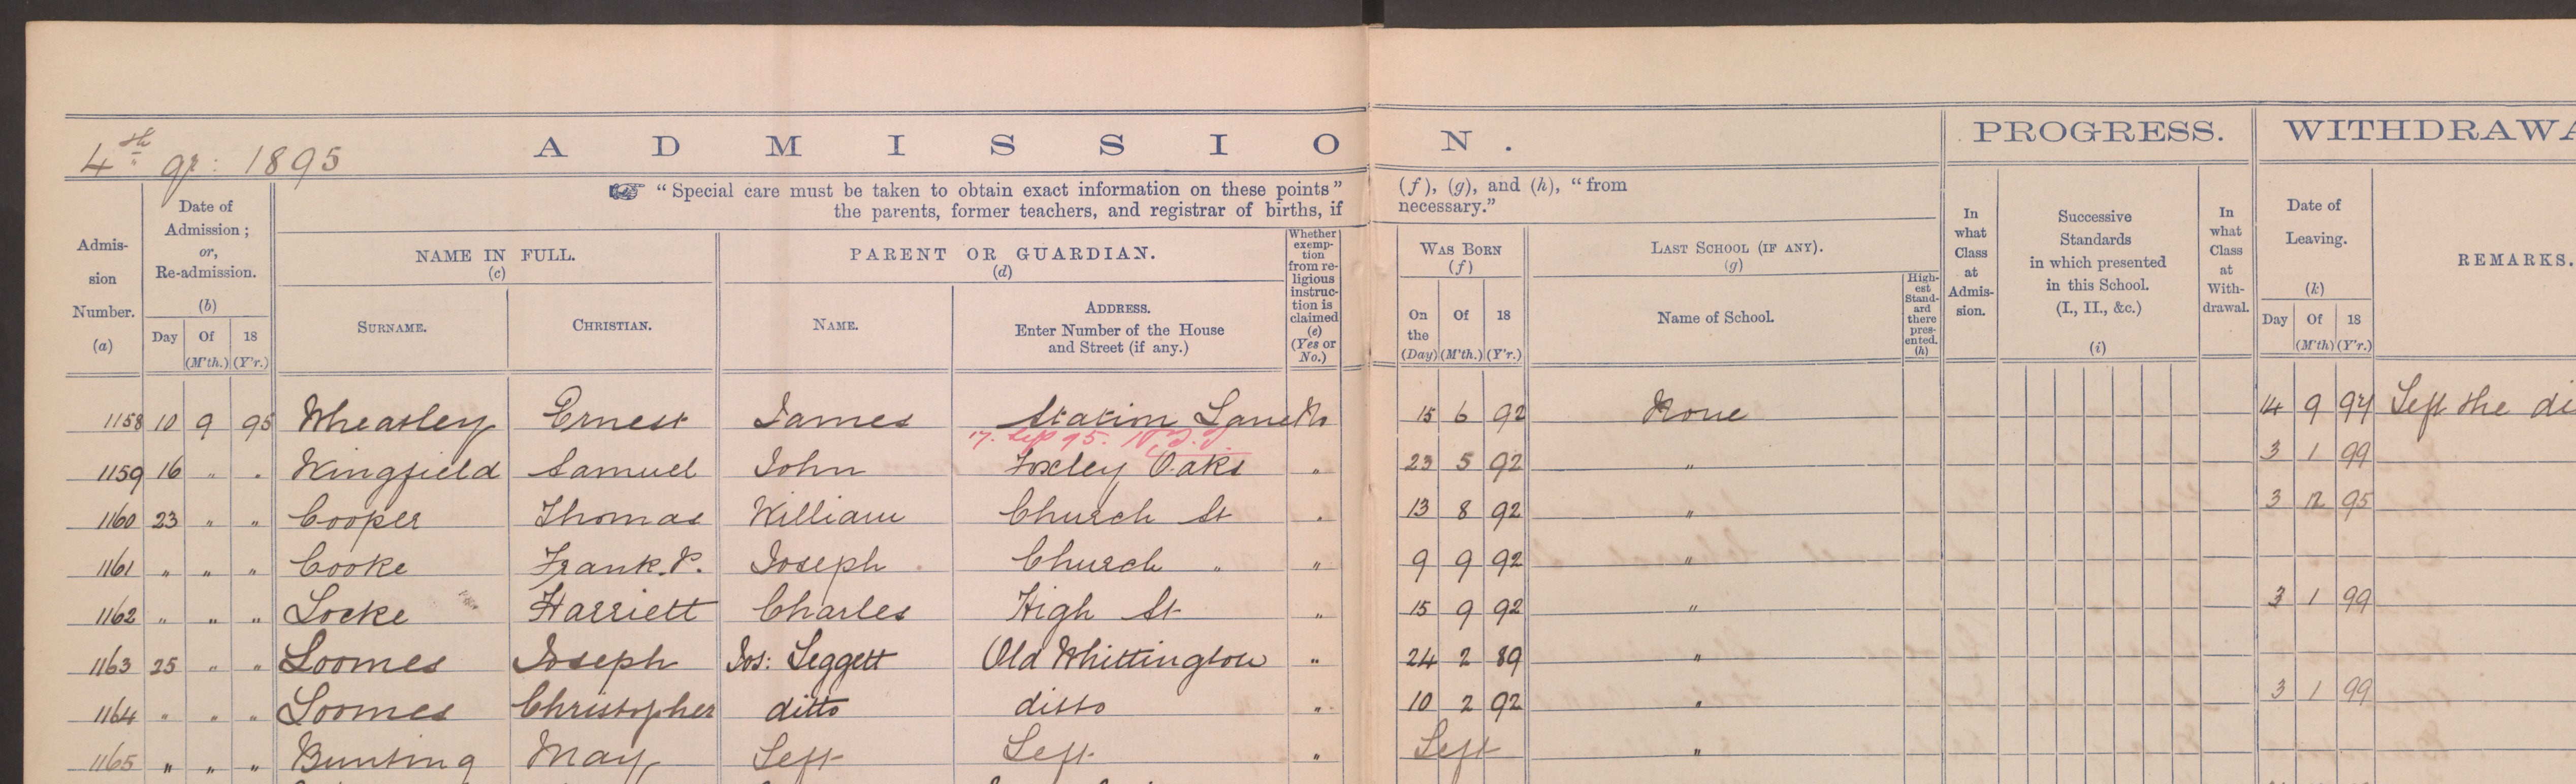 4th qr: 1895
ADMISSION.
PROGRESS.
WITHDRAWA
☞ "Special care must be taken to obtain exact information on these points" (f), (g), and (h), "from
the parents, former teachers, and registrar of births, if necessary."
Admission Number. (a)
Date of Admission; or, Re-admission. (b)
Day Of (M'th.) 18 (Y'r.)
NAME IN FULL. (c)
SURNAME.
CHRISTIAN.
PARENT OR GUARDIAN. (d)
NAME.
ADDRESS.
Enter Number of the House
and Street (if any.)
Whether exemption from religious instruction is claimed (e) (Yes or No.)
WAS BORN (f)
On the (Day) Of (M'th.) 18 (Y'r.)
LAST SCHOOL (IF ANY). (g)
Name of School.
Highest Standard there presented. (h)
In what Class at Admission.
Successive Standards in which presented in this School. (I., II., &c.) (i)
In what Class at Withdrawal.
Date of Leaving. (k)
Day Of (M'th) 18 (Y'r.)
REMARKS.
1158 10 9 95 Wheatley Ernest James Station Lane No 15 6 92 None 14 9 97 Left the di
17. Sep 95.
1159 16 " " Wingfield Samuel John Foxley Oaks " 23 5 92 " 3 1 99
1160 23 " " Cooper Thomas William Church St " 13 8 92 " 3 12 95
1161 " " " Cooke Frank. P. Joseph Church " " 9 9 92 "
1162 " " " Locke Harriett Charles High St " 15 9 92 " 3 1 99
1163 25 " " Loomes Joseph Jos: Leggett Old Whittington " 24 2 89 "
1164 " " " Loomes Christopher ditto ditto " 10 2 92 " 3 1 99
1165 " " " Bunting May Left Left " Left "